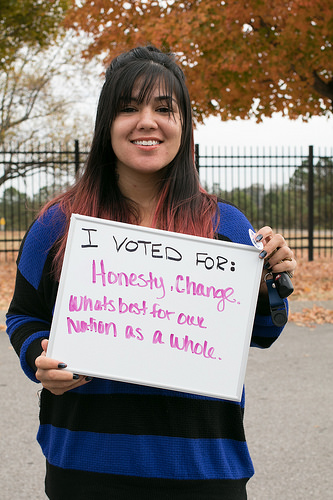 I VOTED FOR:
Honesty, Change.
Whats best for our
Nation as a whole.